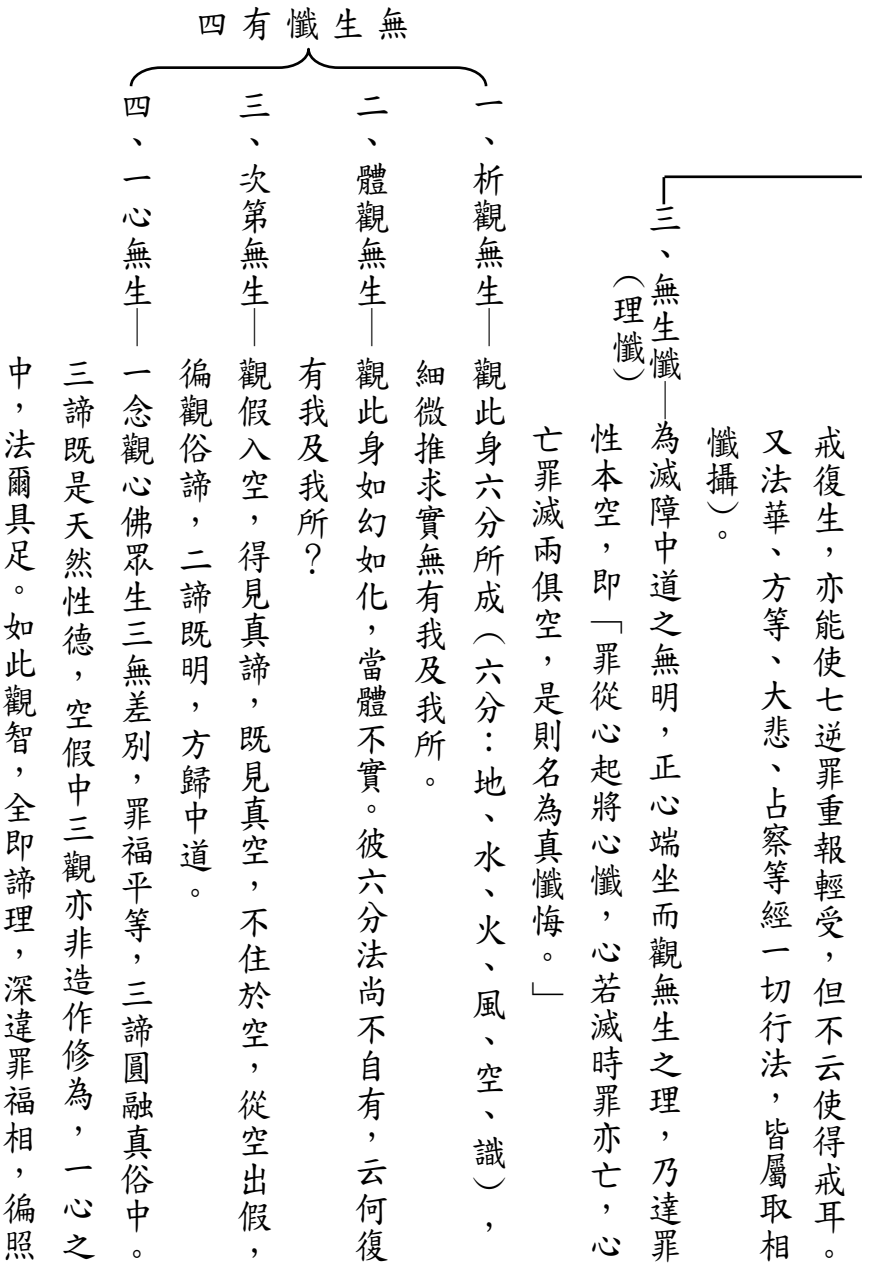 戒復生，亦能使七逆罪重報輕受，但不云使得戒耳。
又法華、方等、大悲、占察等經一切行法，皆屬取相
懺攝）。
三、無生懺—為滅障中道之無明，正心端坐而觀無生之理，乃達罪
（理懺）
性本空，即「罪從心起將心懺，心若滅時罪亦亡，心
亡罪滅兩俱空，是則名為真懺悔。」
無生懺有四
一、析觀無生—觀此身六分所成（六分：地、水、火、風、空、識），
細微推求實無有我及我所。
二、體觀無生—觀此身如幻如化，當體不實。彼六分法尚不自有，云何復
有我及我所？
三、次第無生—觀假入空，得見真諦，既見真空，不住於空，從空出假，
徧觀俗諦，二諦既明，方歸中道。
四、一心無生—一念觀心佛眾生三無差別，罪福平等，三諦圓融真俗中。
三諦既是天然性德，空假中三觀亦非造作修為，一心之
中，法爾具足。如此觀智，全即諦理，深違罪福相，徧照